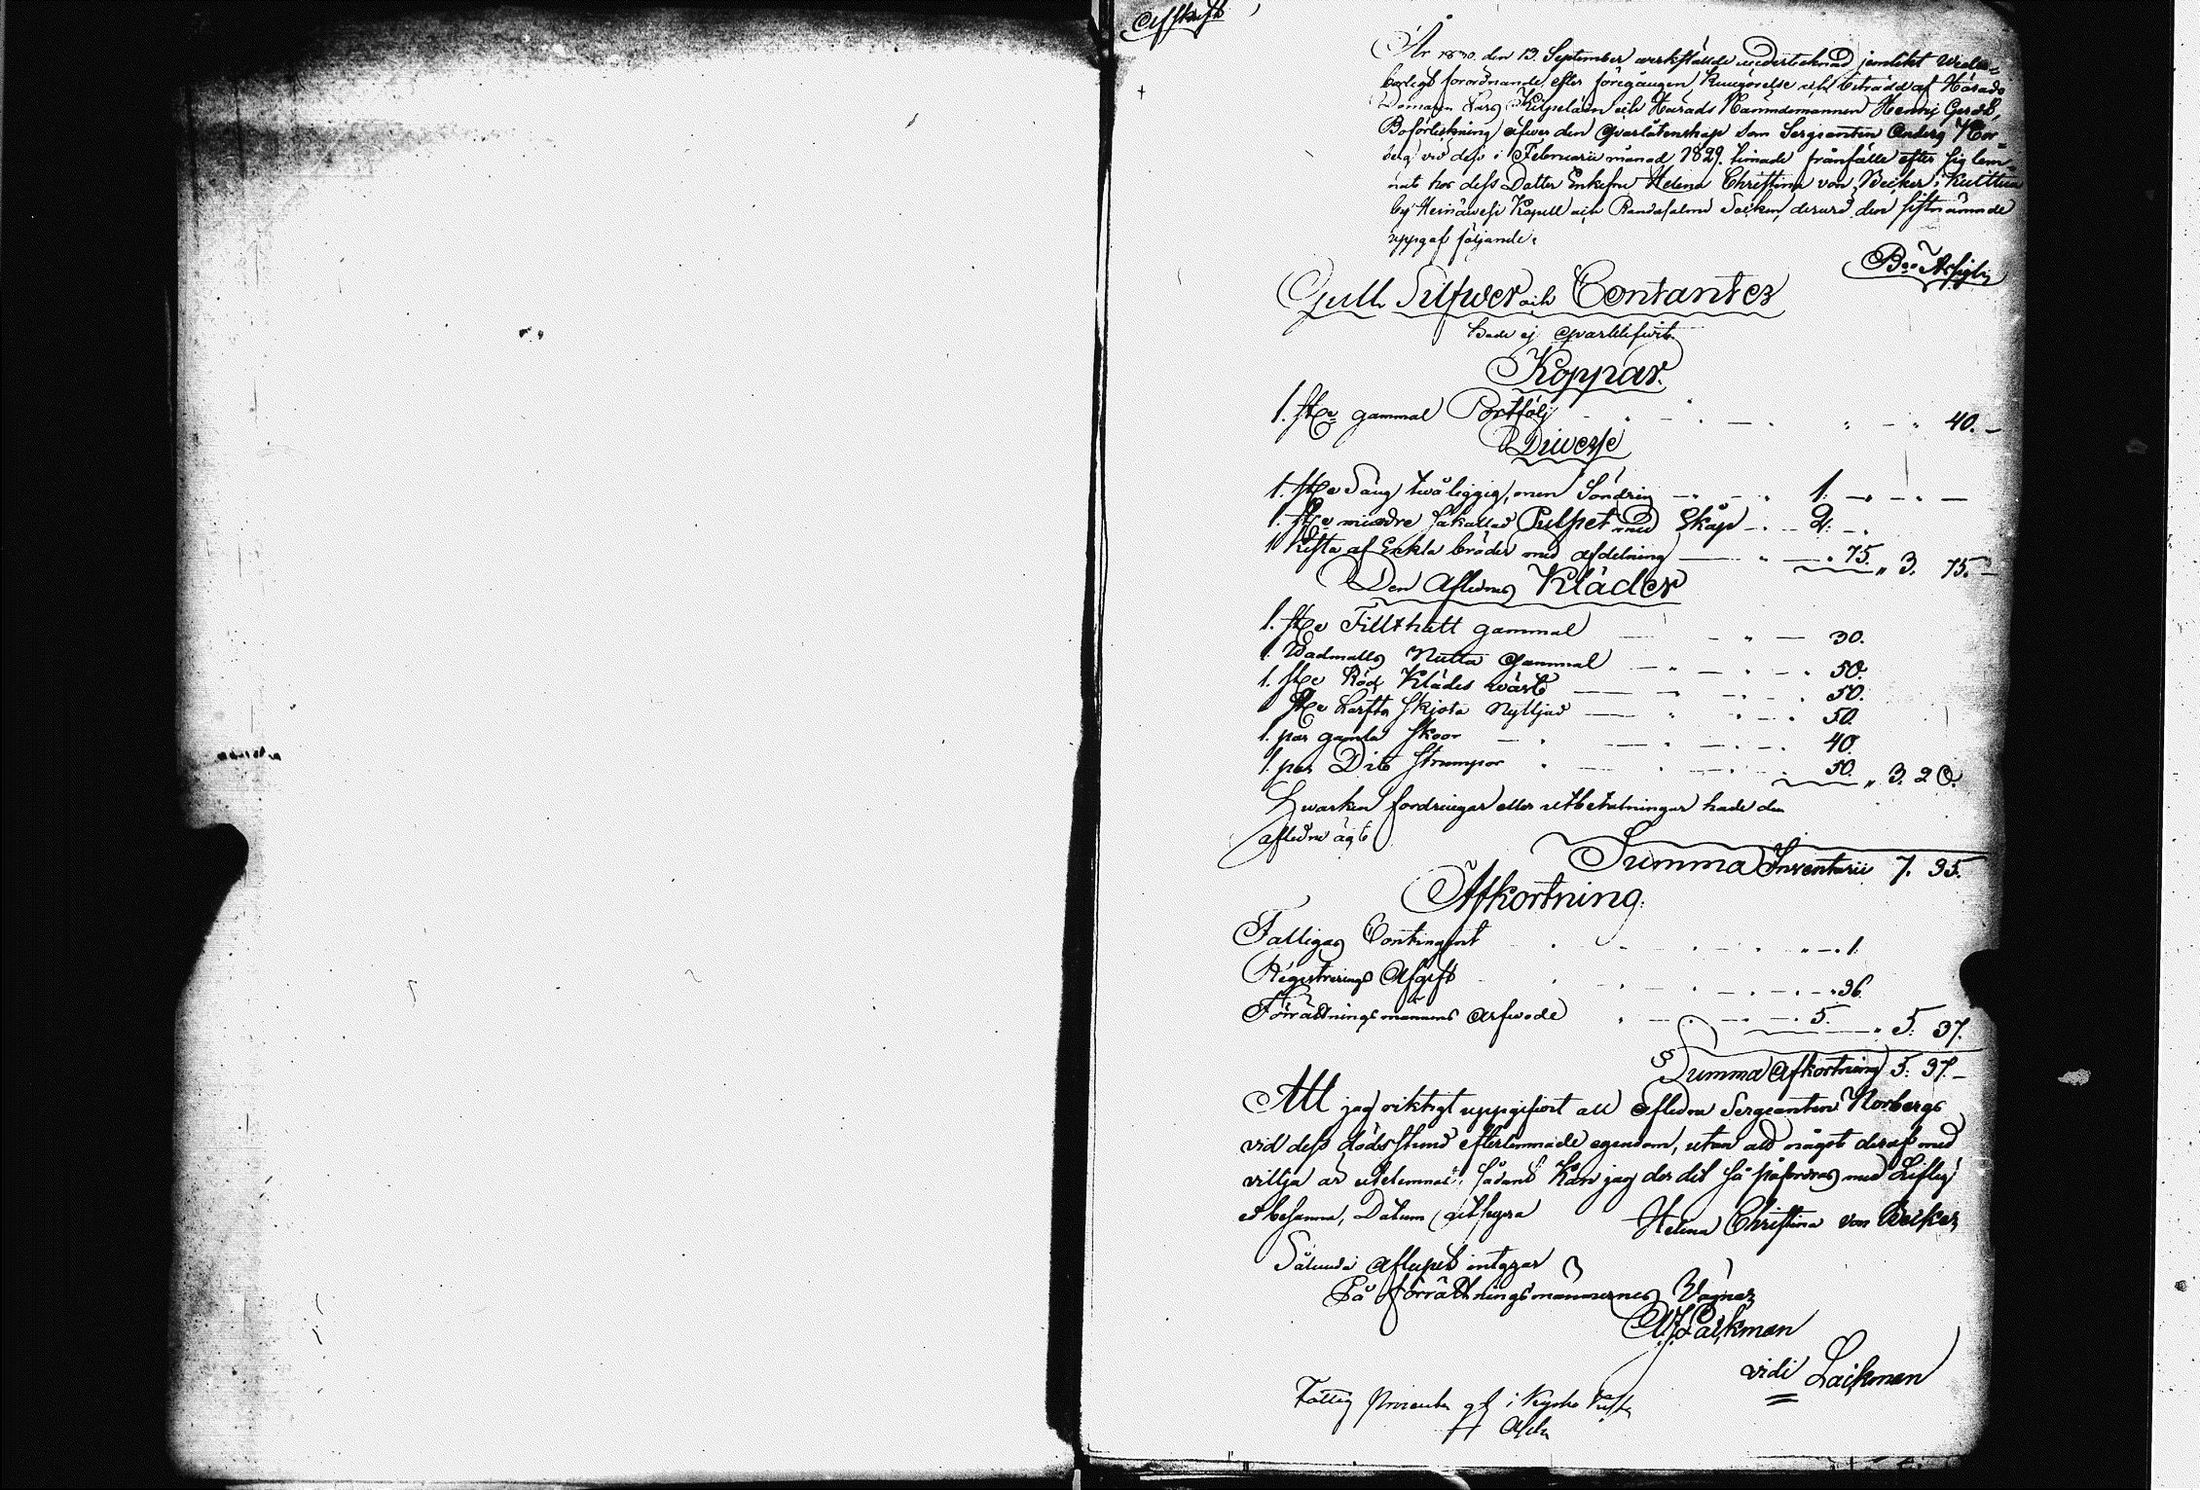 Afskrift
År 1830 den 13 September verkställde undertecknad jemlikt Weder=
börligt förordnande efter föregången Kungörelse och biträdd af Härads
Domaren Lars Kilpeläin och Härads Nämndemannen Henrij
öfwer den Qvarlåtenskap Som Sergeanten Anders Nor=
berg vid dess i Februarii månad 1829 timade frånfälle efter sig lem=
nat hos dess Dotter Enkefru Helena Christina von Becker i
by Heinäwesi Kapell och Randasalmi Socken, derwid den sistnämnde
uppgaf följande:
B:co Assigt:
Gull Silfwer och Contanter
hade ej qvarblifwit.
Koppar.
1. st:e gammal 40. —
Diverse
1. st:e Säng twåliggig, men Söndrig 1. —
1. st:e mindre så kallad Pulpet med Skåp 2. —
1 Kista af Enkla bräder med afdelning 75. " 3. 75. —
Den Aflednes Kläder
1. st:e Filtthatt gammal 30.
1. Wadmalls gammal 50.
1. st:e Röd Klädes wäst 50.
1 st:e Skjorta Nyttjad 50.
1. par gamla Skoor 40.
1. par Dito Strumpor 50. " 3. 20.
Hwarken fordringar eller utbetalningar hade den
afledne ägt
Summa Inventarii 7. 35.
Afkortning.
Fattigas Contingent 1.
Registrerings Afgift 36.
Förrättningsmannens Arfwode 5. " 5. 37.
Summa Afkortning 5: 37. —
Att jag riktigt uppgifwit all afledne Sergeanten Norbergs
vid dess dödsstund efterlemnade egendom, utan att något deraf med
vilja är utelemnat; sådant kan jag der det så påfordras med Liflig
ed besanna, Datum ut supra Helena Christina von Becker
Sålunda aflupet intygar
På förrättningsmännernes Vägnar
Laikman
vidi Laikman